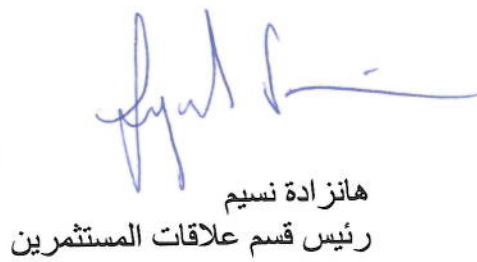 هانزادة نسيم
رئيس قسم علاقات المستثمرين